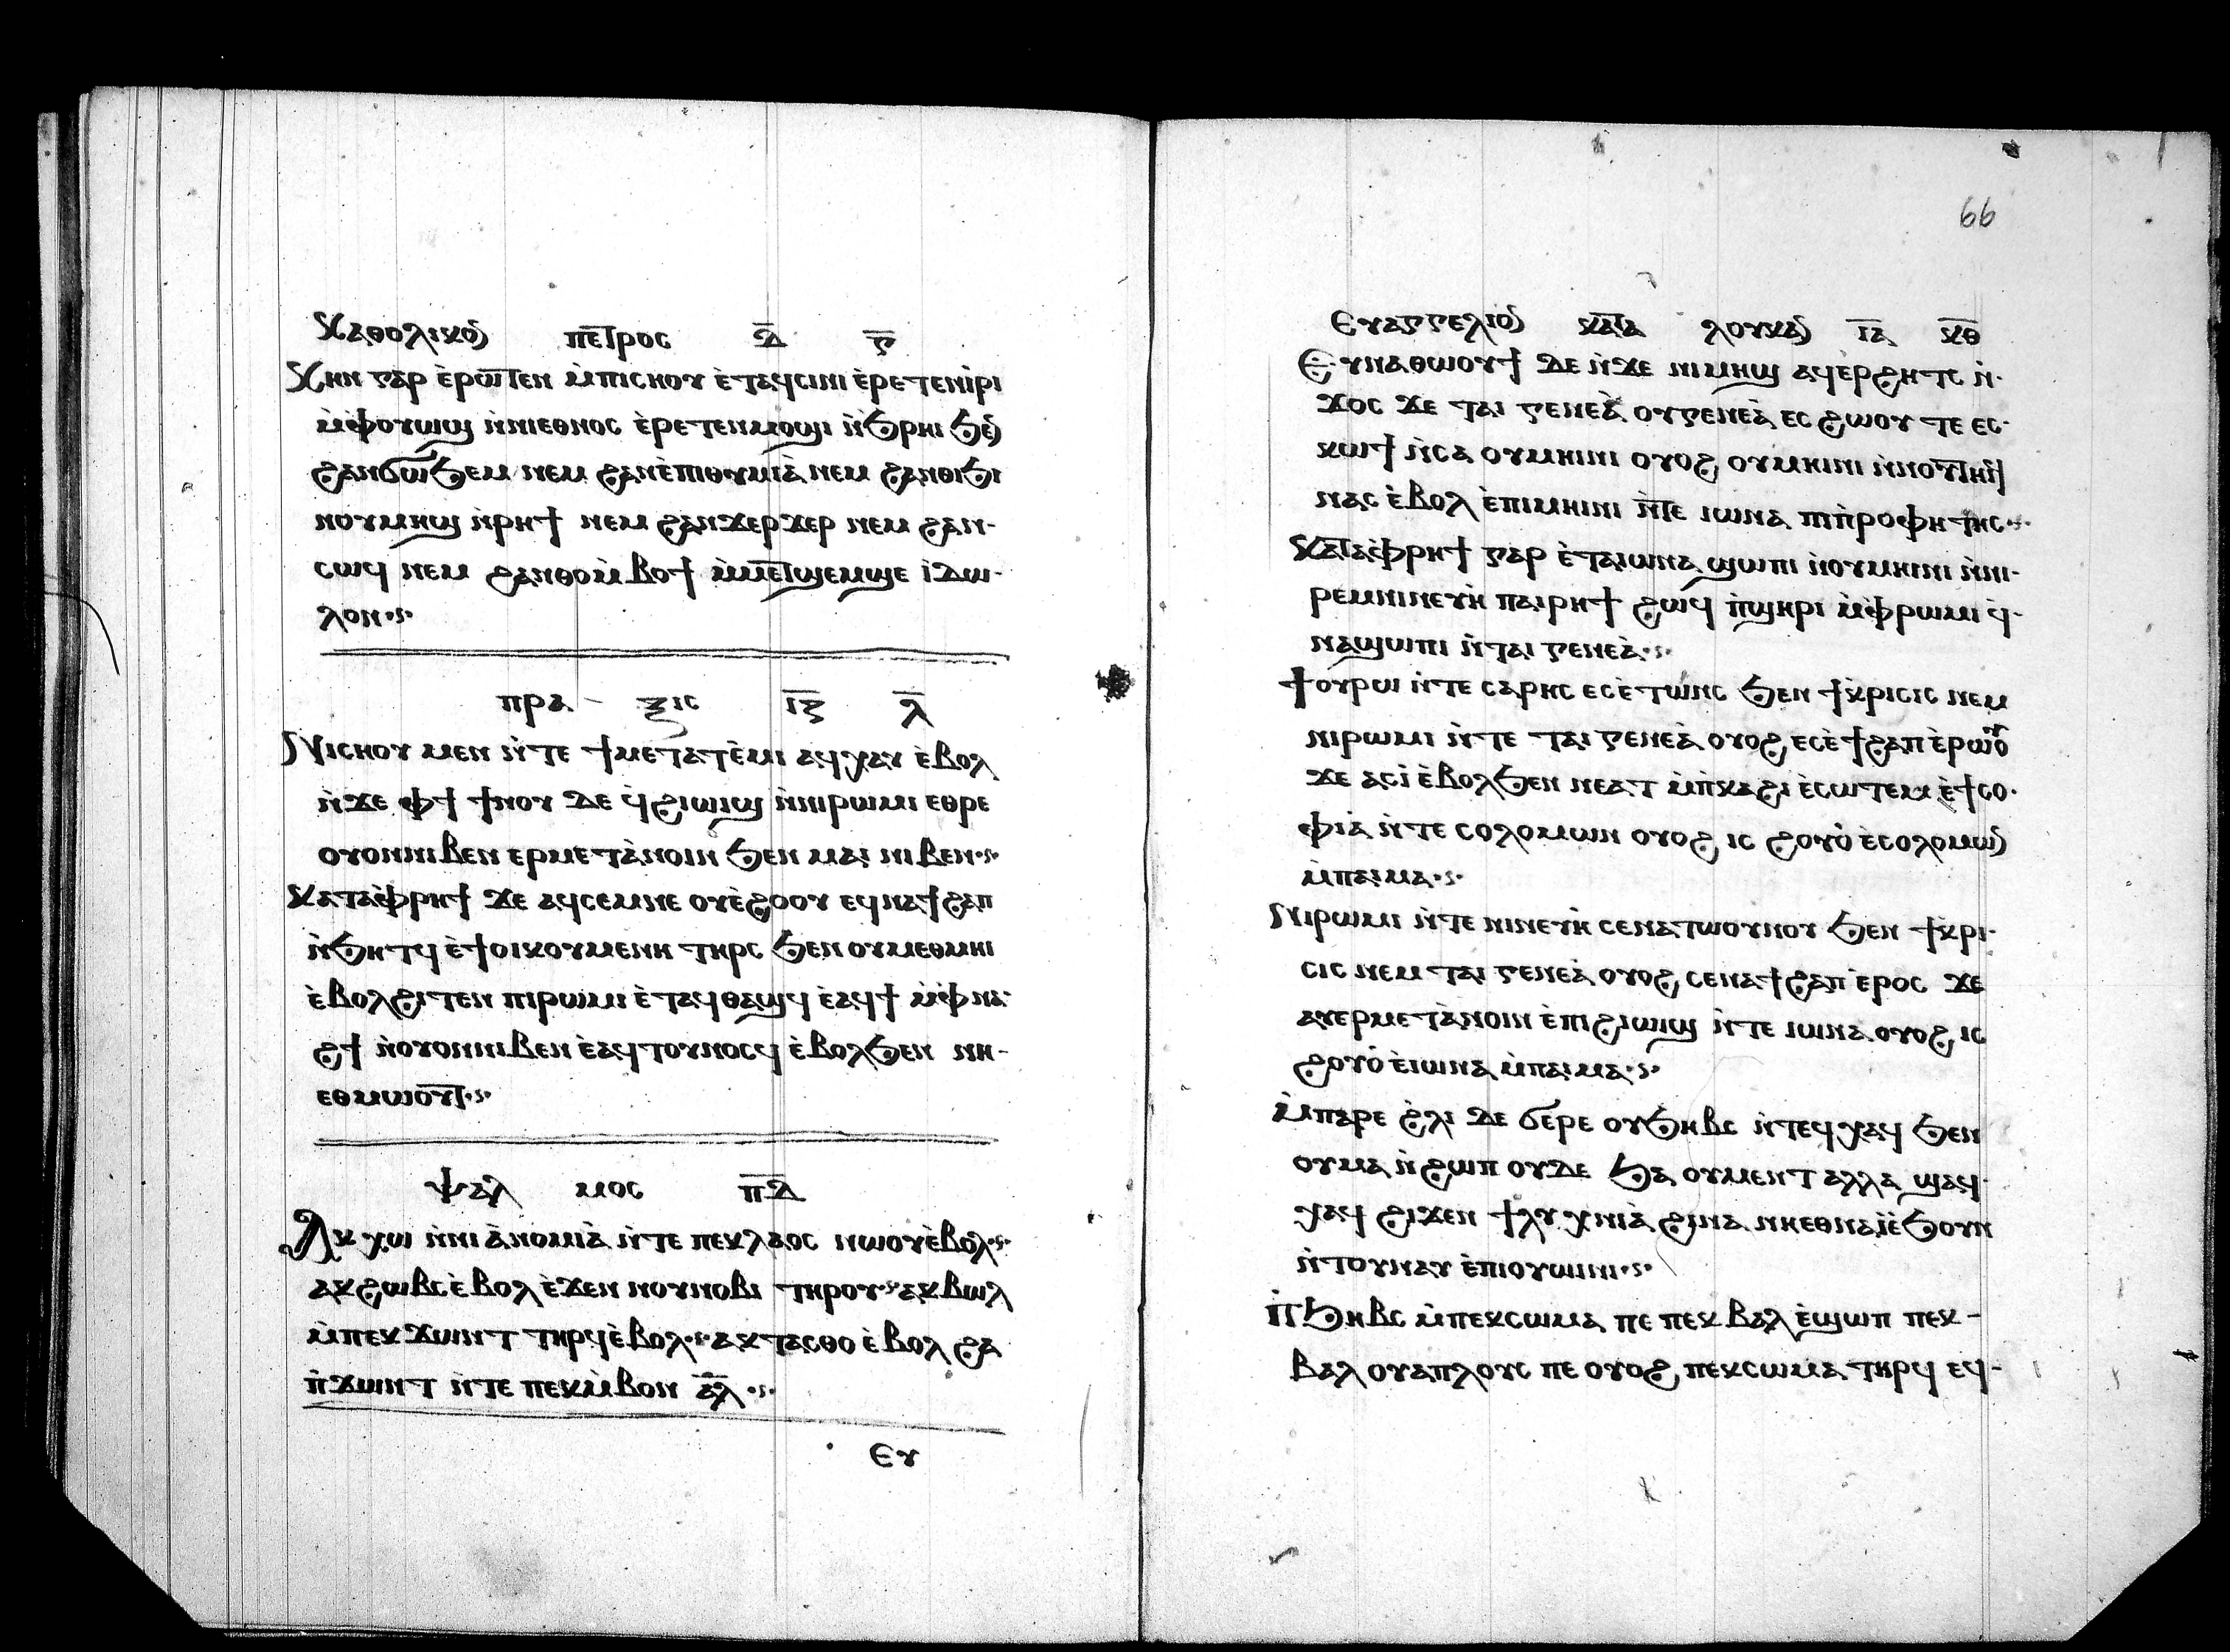 Ⲕⲁⲑⲟⲗⲓⲕⲟⲛ ⲡⲉⲧⲣⲟⲥ ⲁ̅ ⲋ̅
Ⲕⲏⲛ ⲅⲁⲣ ⲉ̀ⲣⲱⲧⲉⲛ ⲙ̀ⲡⲓⲥⲏⲟⲩ ⲉ̀ⲧⲁϥⲥⲓⲛⲓ ⲉ̀ⲣⲉⲧⲉⲛⲓ̀ⲣⲓ
ⲙ̀ⲫⲟⲩⲱϣ ⲛ̀ⲛⲓⲉⲑⲛⲟⲥ ⲉ̀ⲣⲉⲧⲉⲛⲙⲟϣⲓ ⲛ̀ϧⲣⲏⲓ ϧⲉⲛ
ϩⲁⲛϭⲱϧⲉⲙ ⲛⲉⲙ ϩⲁⲛⲉ̀ⲡⲓⲑⲩⲙⲓⲁ̀ ⲛⲉⲙ ϩⲁⲛⲑⲓϧⲓ
ⲛⲟⲩⲙⲏϣ ⲛ̀ⲣⲏϯ ⲛⲉⲙ ϩⲁⲛϫⲉⲣϫⲉⲣ ⲛⲉⲙ ϩⲁⲛ-
ⲥⲱϥ ⲛⲉⲙ ϩⲁⲛⲑⲟⲙ̀ⲃⲟϯ ⲙ̀ⲙⲉⲧϣⲉⲙϣⲉ ⲓ̀ⲇⲱ-
ⲗⲟⲛ·ⲋ·
ⲡⲣⲁ- ⲝⲓⲥ ⲓ̅ⲍ̅ ⲗ̅
Ⲛⲓⲥⲏⲟⲩ ⲙⲉⲛ ⲛ̀ⲧⲉ ϯⲙⲉⲧⲁⲧⲉ̀ⲙⲓ ⲁϥⲭⲁⲩ ⲉ̀ⲃⲟⲗ
ⲛ̀ϫⲉ ⲫϯ ϯⲛⲟⲩ ⲇⲉ ϥ̀ϩⲓⲱⲓϣ ⲛ̀ⲛⲓⲣⲱⲙⲓ ⲉⲑⲣⲉ
ⲟⲩⲟⲛⲛⲓⲃⲉⲛ ⲉⲣⲙⲉⲧⲁ̀ⲛⲟⲓⲛ ϧⲉⲛ ⲙⲁⲓ ⲛⲓⲃⲉⲛ·ⲋ·
Ⲕⲁⲧⲁⲫ̀ⲣⲏϯ ϫⲉ ⲁϥⲥⲉⲙⲛⲉ ⲟⲩⲉ̀ϩⲟⲟⲩ ⲉϥⲛⲁϯϩⲁⲡ
ⲛ̀ϧⲏⲧϥ ⲉ̀ϯⲟⲓⲕⲟⲩⲙⲉⲛⲏ ⲧⲏⲣⲥ ϧⲉⲛ ⲟⲩⲙⲉⲑⲙⲏⲓ
ⲉ̀ⲃⲟⲗϩⲓⲧⲉⲛ ⲡⲓⲣⲱⲙⲓ ⲉ̀ⲧⲁϥⲑⲁϣϥ ⲉ̀ⲁϥϯ ⲙ̀ⲫⲛⲁ-
ϩϯ ⲛ̀ⲟⲩⲟⲛⲛⲓⲃⲉⲛ ⲉ̀ⲁϥⲧⲟⲩⲛⲟⲥϥ ⲉ̀ⲃⲟⲗϧⲉⲛ ⲛⲏ-
ⲉⲑⲙⲱⲟⲩⲧ·ⲋ·
ⲯⲁⲗ ⲙⲟⲥ ⲡ̅ⲇ̅
Ⲁⲕⲭⲱ ⲛ̀ⲛⲓⲁ̀ⲛⲟⲙⲓⲁ̀ ⲛ̀ⲧⲉ ⲡⲉⲕⲗⲁⲟⲥ ⲛⲱⲟⲩⲉ̀ⲃⲟⲗ·ⲋ·
ⲁⲕϩⲱⲃⲥⲉ̀ⲃⲟⲗ ⲉ̀ϫⲉⲛ ⲛⲟⲩⲛⲟⲃⲓ ⲧⲏⲣⲟⲩ·ⲋ·ⲁⲕⲃⲱⲗ
ⲙ̀ⲡⲉⲕϫⲱⲛⲧ ⲧⲏⲣϥⲉ̀ⲃⲟⲗ·ⲋ·ⲁⲕⲧⲁⲥⲑⲟ ⲉ̀ⲃⲟⲗ ϩⲁ
ⲡ̀ϫⲱⲛⲧ ⲛ̀ⲧⲉ ⲡⲉⲕⲙ̀ⲃⲟⲛ ⲁ̅ⲗ̅·ⲋ·
Ⲉⲩ
66
Ⲉⲩⲁⲅⲅⲉⲗⲓⲟⲛ ⲕⲁⲧⲁ ⲗⲟⲩⲕⲁⲛ ⲓ̅ⲁ̅ ⲕ̅ⲑ̅
Ⲉⲩⲛⲁⲑⲱⲟⲩϯ ⲇⲉ ⲛ̀ϫⲉ ⲛⲓⲙⲏϣ ⲁϥⲉⲣϩⲏⲧⲥ ⲛ̀-
ϫⲟⲥ ϫⲉ ⲧⲁⲓ ⲅⲉⲛⲉⲁ̀ ⲟⲩⲅⲉⲛⲉⲁ̀ ⲉⲥϩⲱⲟⲩ ⲧⲉ ⲉⲥ-
ⲕⲱϯ ⲛ̀ⲥⲁ ⲟⲩⲙⲏⲓⲛⲓ ⲟⲩⲟϩ ⲟⲩⲙⲏⲓⲛⲓ ⲛ̀ⲛⲟⲩⲧⲏⲓϥ
ⲛⲁⲥ ⲉ̀ⲃⲟⲗ ⲉ̀ⲡⲓⲙⲏⲓⲛⲓ ⲛ̀ⲧⲉ ⲓⲱⲛⲁ ⲡⲓⲡ̀ⲣⲟⲫⲏⲧⲏⲥ·ⲋ·
Ⲕⲁⲧⲁⲫ̀ⲣⲏϯ ⲅⲁⲣ ⲉ̀ⲧⲁⲓⲱⲛⲁ ϣⲱⲡⲓ ⲛ̀ⲟⲩⲙⲏⲓⲛⲓ ⲛ̀ⲛⲓ-
ⲣⲉⲙⲛⲓⲛⲉⲩⲏ̀ ⲡⲁⲓⲣⲏϯ ϩⲱϥ ⲡ̀ϣⲏⲣⲓ ⲙ̀ⲫⲣⲱⲙⲓ ϥ̀-
ⲛⲁϣⲱⲡⲓ ⲛ̀ⲧⲁⲓ ⲅⲉⲛⲉⲁ̀·ⲋ·
ϯⲟⲩⲣⲱ ⲛ̀ⲧⲉ ⲥⲁⲣⲏⲥ ⲉⲥⲉ̀ⲧⲱⲛⲥ ϧⲉⲛ ϯⲕ̀ⲣⲓⲥⲓⲥ ⲛⲉⲙ
ⲛⲓⲣⲱⲙⲓ ⲛ̀ⲧⲉ ⲧⲁⲓ ⲅⲉⲛⲉⲁ̀ ⲟⲩⲟϩ ⲉⲥⲉ̀ϯϩⲁⲡ ⲉ̀ⲣⲱⲟⲩ
ϫⲉ ⲁⲥⲓ̀ ⲉ̀ⲃⲟⲗϧⲉⲛ ⲛⲉⲁⲧ ⲙ̀ⲡ̀ⲕⲁϩⲓ ⲉ̀ⲥⲱⲧⲉⲙ ⲉ̀ϯⲥⲟ-
ⲫⲓⲁ̀ ⲛ̀ⲧⲉ ⲥⲟⲗⲟⲙⲱⲛ ⲟⲩⲟϩ ⲓⲥ ϩⲟⲩⲟ̀ ⲉ̀ⲥⲟⲗⲟⲙⲱⲛ
ⲙ̀ⲡⲁⲓⲙⲁ·ⲋ·
Ⲛⲓⲣⲱⲙⲓ ⲛ̀ⲧⲉ ⲛⲓⲛⲉⲩⲏ̀ ⲥⲉⲛⲁⲧⲱⲟⲩⲛⲟⲩ ϧⲉⲛ ϯⲕ̀ⲣⲓ-
ⲥⲓⲥ ⲛⲉⲙ ⲧⲁⲓ ⲅⲉⲛⲉⲁ̀ ⲟⲩⲟϩ ⲥⲉⲛⲁϯϩⲁⲡ ⲉ̀ⲣⲟⲥ ϫⲉ
ⲁⲩⲉⲣⲙⲉⲧⲁ̀ⲛⲟⲓⲛ ⲉ̀ⲡⲓϩⲓⲱⲓϣ ⲛ̀ⲧⲉ ⲓⲱⲛⲁ ⲟⲩⲟϩ ⲓⲥ
ϩⲟⲩⲟ̀ ⲉ̀ⲓⲱⲛⲁ ⲙ̀ⲡⲁⲓⲙⲁ·ⲋ·
Ⲙ̀ⲡⲁⲣⲉ ϩ̀ⲗⲓ ⲇⲉ ϭⲉⲣⲉ ⲟⲩϧⲏⲃⲥ ⲛ̀ⲧⲉϥⲭⲁϥ ϧⲉⲛ
ⲟⲩⲙⲁ ⲛ̀ϩⲱⲡ ⲟⲩⲇⲉ ϧⲁ ⲟⲩⲙⲉⲛⲧ ⲁⲗⲗⲁ ϣⲁϥ-
ⲭⲁϥ ϩⲓϫⲉⲛ ϯⲗⲩⲭⲛⲓⲁ̀ ϩⲓⲛⲁ ⲛⲏⲉⲑⲛⲁⲓ̀ⲉ̀ϧⲟⲩⲛ
ⲛ̀ⲧⲟⲩⲛⲁⲩ ⲉ̀ⲡⲓⲟⲩⲱⲓⲛⲓ·ⲋ·
Ⲡ̀ϧⲏⲃⲥ ⲙ̀ⲡⲉⲕⲥⲱⲙⲁ ⲡⲉ ⲡⲉⲕⲃⲁⲗ ⲉ̀ϣⲱⲡ ⲡⲉⲕ-
ⲃⲁⲗ ⲟⲩⲁⲡⲗⲟⲩⲥ ⲡⲉ ⲟⲩⲟϩ ⲡⲉⲕⲥⲱⲙⲁ ⲧⲏⲣϥ ⲉϥ-